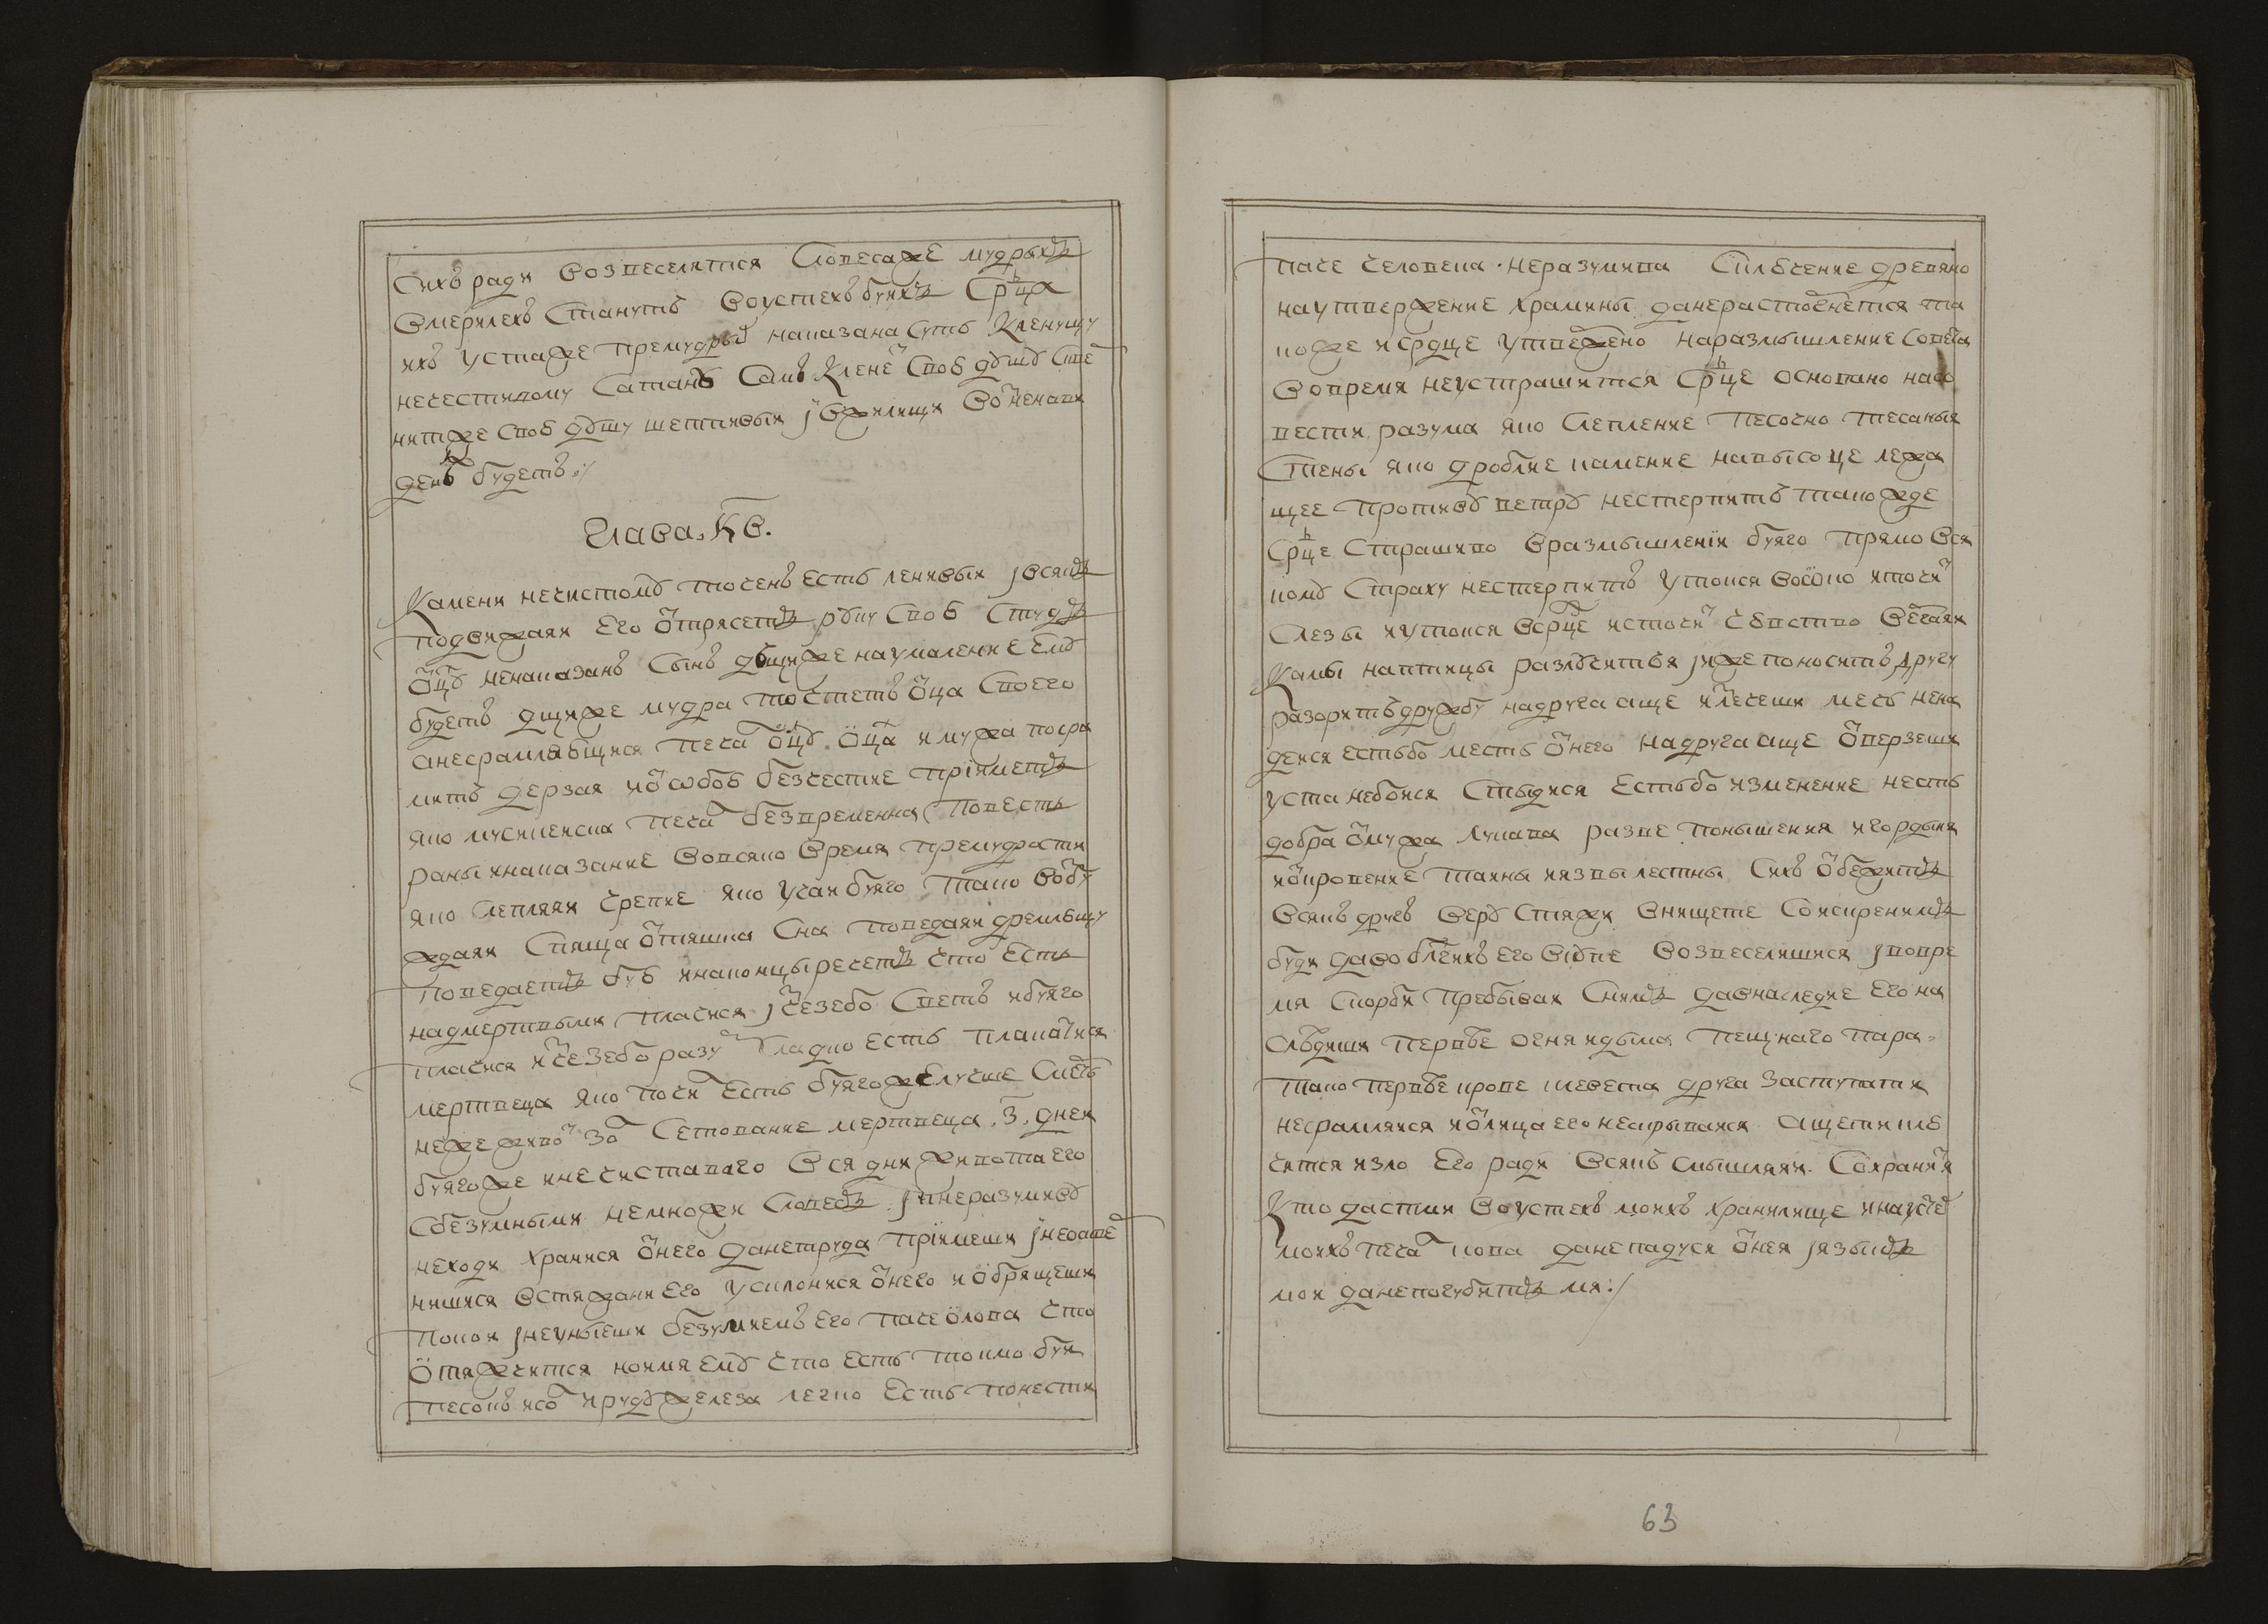 Сихъ ради возвеселится Словесаже мудрыхъ
вмерилехъ Станутъ воустехъ буихъ Срⷣца
ихъ устаже премудрыⷯ наказана Суть Кленущу
нечестивому Сатанѣ Самъ Кленеⷮ Своѣ дѹшѹ Скве
нитже своѣ дѹшу шептивыи ивжилищи воⷥненави
денъ будетъ:/
Глава. К҃в.
Камени нечистомѹ точенъ есть ленивыи ивсякъ
подвижаяи Его ѿтрясетъ рѹку своѣ Студъ
ѿцѹ ненаказанъ Сынъ дѣщиже наумаление Емѹ
будетъ дщиже мудра точтетъ оца Своего
анесрамлѣщися печаⷧ ѿцѹ. оца имужа посра
митъ дерзая иѿобоѣ безчестие приимепъ
яко мусикиска печаⷧ безвременна Повесть
раны инаказание вовсяко время премудрости
яко лепляяи чрепие яко учаи буяго Тако воⷥбу
ждаяи Спяща ѿтяшка Сна поведаяи дремлѣщу
Поведаетъ буѣ инаконцыречетъ что есть
надмертвымъ плачися ичезебо Светъ ибуяго
плачися ичезебо разуⷨ Сладко есть плакатися
мертвеца яко почи есть буягожелучше Смеⷬть
нежеживоⷮ зоⷧ Сетование мертвеца. з. днеи
буягоже инечиставаго вся дни живота его
Собезумнымъ немножи Словесъ. икнеразумивѹ
неходи хранися ѿнего данетруда приимеши инеосве
нишися встяжани его уклонися ѿнего иобрящеши
покои инеуныеши безумиемъ его паче олова что
ѿтяжчится ноимя емѹ что есть токмо буи
песокъ исоⷧ ирудѹ железа легко есть понести
паче человека. неразумива Сплѣчение древяно
наутвержение храмины данерасточнется та
коже исрдце утвержено наразмышление Совета
вовремя неустрашится Срⷣце основано насо
вести разума яко Слепление песочно тесаныя
Стены яко дробные камение навысоце лежа
щее противѹ ветрѹ нестерпитъ такожде
Срⷣце Страшиво вразмышлении буяго прямо вся
комѹ Страху нестерпитъ утокся вооко источиⷮ
Слезы иутокся всрⷣце источиⷮ чѣвство вегаяи
Камы наптицы разлѹчитъя ииже поноситъ Другу
разоритъ дружбу надруга аще ивлечеши мечь нена
деися естьбо месть ѿнего надруга аще ѿверзеши
уста небоися Стыдися Естьбо изменение несть
добра ѿмужа Лукава разве поношения игордыни
иѿкровение таины иязвы лестны. Сихъ ѿбежитъ
всякъ другъ верѹ Стяжи внищете Соискренимъ
буди даво благихъ его вкѹпе возвеселишися ивовре
мя Скорби пребываи Снимъ давнаследие Его на
слѣдиши первѣе огня идыма пещнаго пара.
Тако первѣе крове клевета друга заступати
несрамляися иѿлица его нескрываися Ащети клѣ
чится изло Его ради всякъ Слышляяи. Сохранися
Кто дастми воустехъ моихъ хранилище инаустеⷯ
моихъ печаⷮ кова данепадуся ѿнея иязыкъ
мои данепогубитъ мя:/
63